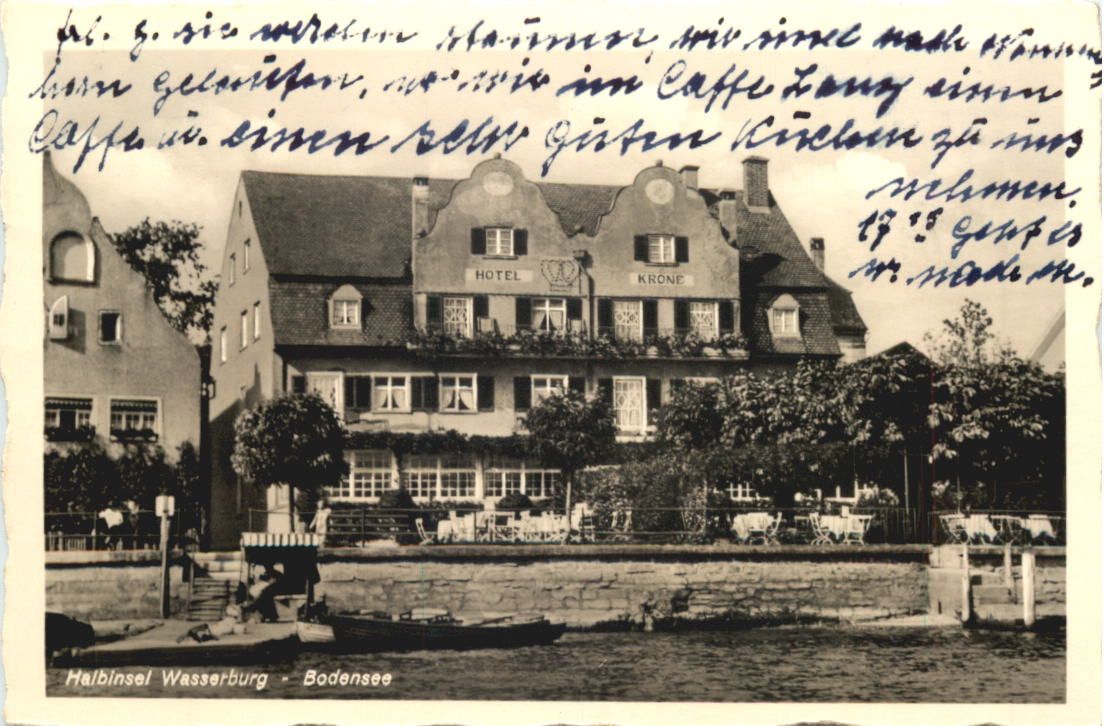 frl. g. sie werden staunen, wir sind nach Nonnen
horn gelaufen, wo wir im Caffe Lang einen
Caffe u. einen sehr guten Kuchen zu uns
nehmen.
17 geht es
w. nach
HOTEL KRONE
Halbinsel Wasserburg - Bodensee